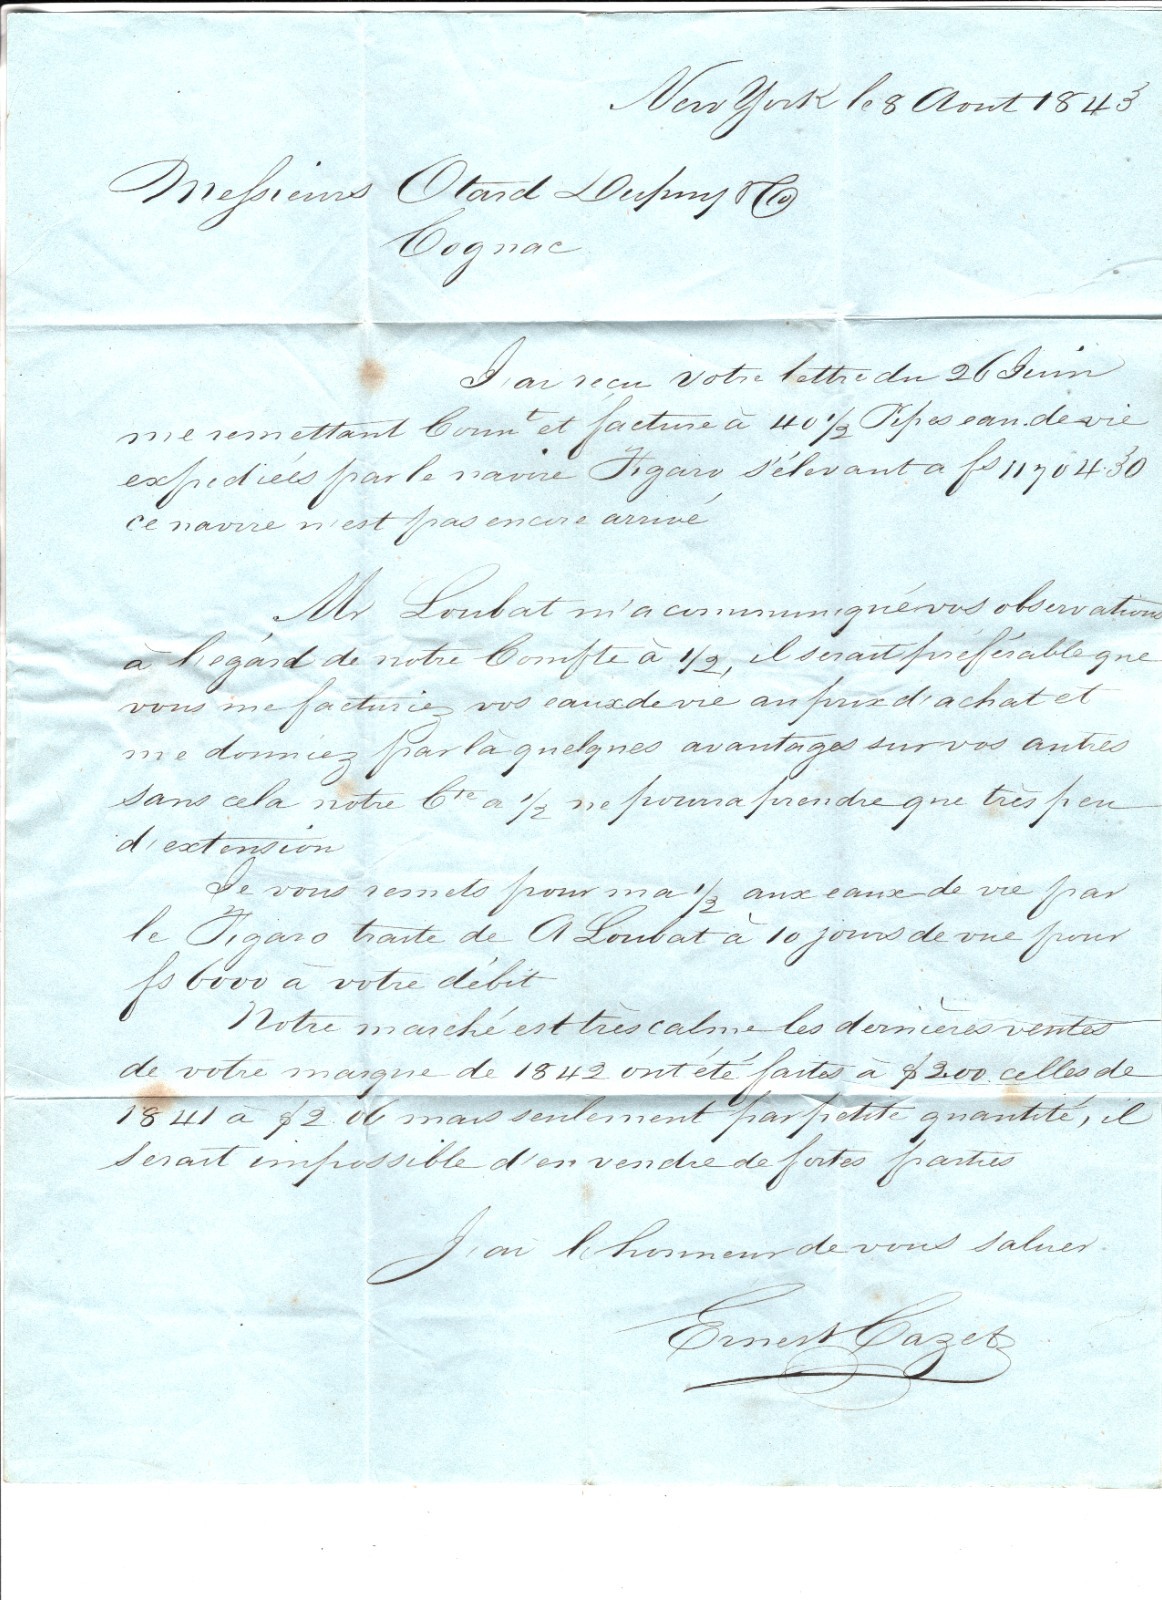 New York le 8 Aout 1843
Messieurs Otard Dupuy & Co
Cognac
J'ai reçu votre lettre du 26 Juin
me remettant Connt et facture à 40 1/2 Pipes eau.de.vie
expediées par le navire Figaro s'élevant a fs 11704.30
ce navire n'est pas encore arrivé
Mr Loubat m'a communiqué vos observations
à l'égard de notre Compte à 1/2, il serait préférable que
vous me facturiez vos eaux de vie au prix d'achat et
me donniez par là quelques avantages sur vos autres
sans cela notre Cte a 1/2 ne pourra prendre que très peu
d'extension
Je vous remets pour ma 1/2 aux eaux de vie par
le Figaro traite de A Loubat à 10 jours de vue pour
fs 6000 à votre débit
Notre marché est très calme les dernières ventes
de votre marque de 1842 ont été faites à $2.00. celles de
1841 à $2.06 mais seulement par petite quantité, il
serait impossible d'en vendre de fortes parties
J'ai l'honneur de vous saluer.
Ernest Cazet